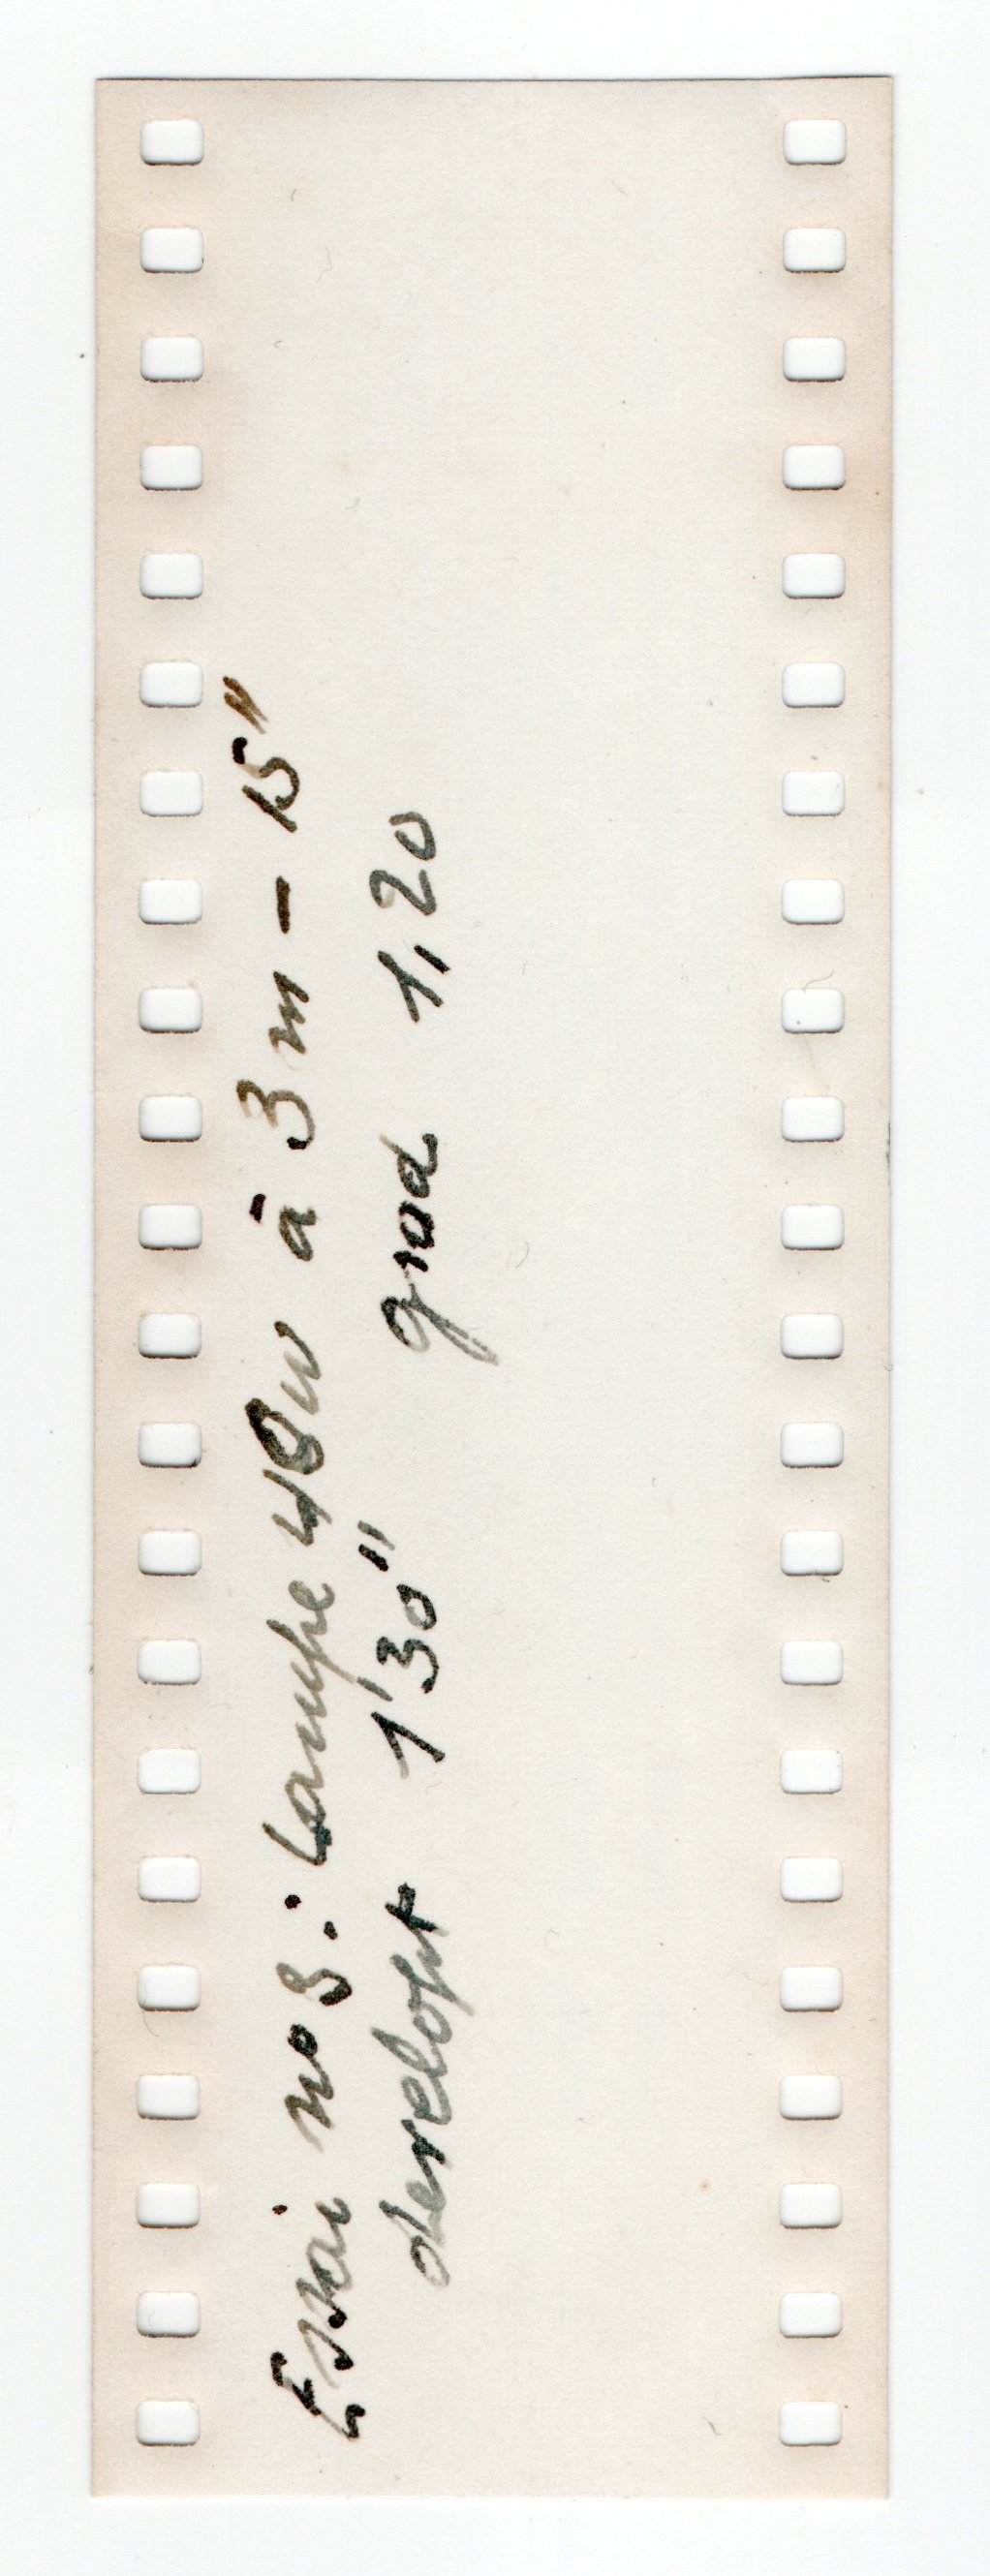 Essai no 3 : Lampe 40w à 3 m - 15"
developt 1'30" grad 1,20